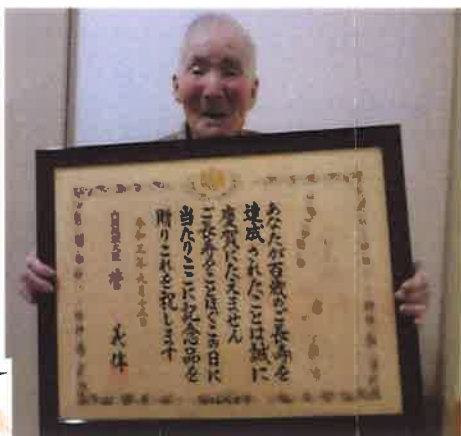 あなたが百歳のご長寿を
達成されたことは誠に
慶賀にたえません
ご長寿をことほぐこの日に
当たりここに記念品を
贈りこれを祝します
令和三年九月十五日
内閣総理大臣 菅 義偉